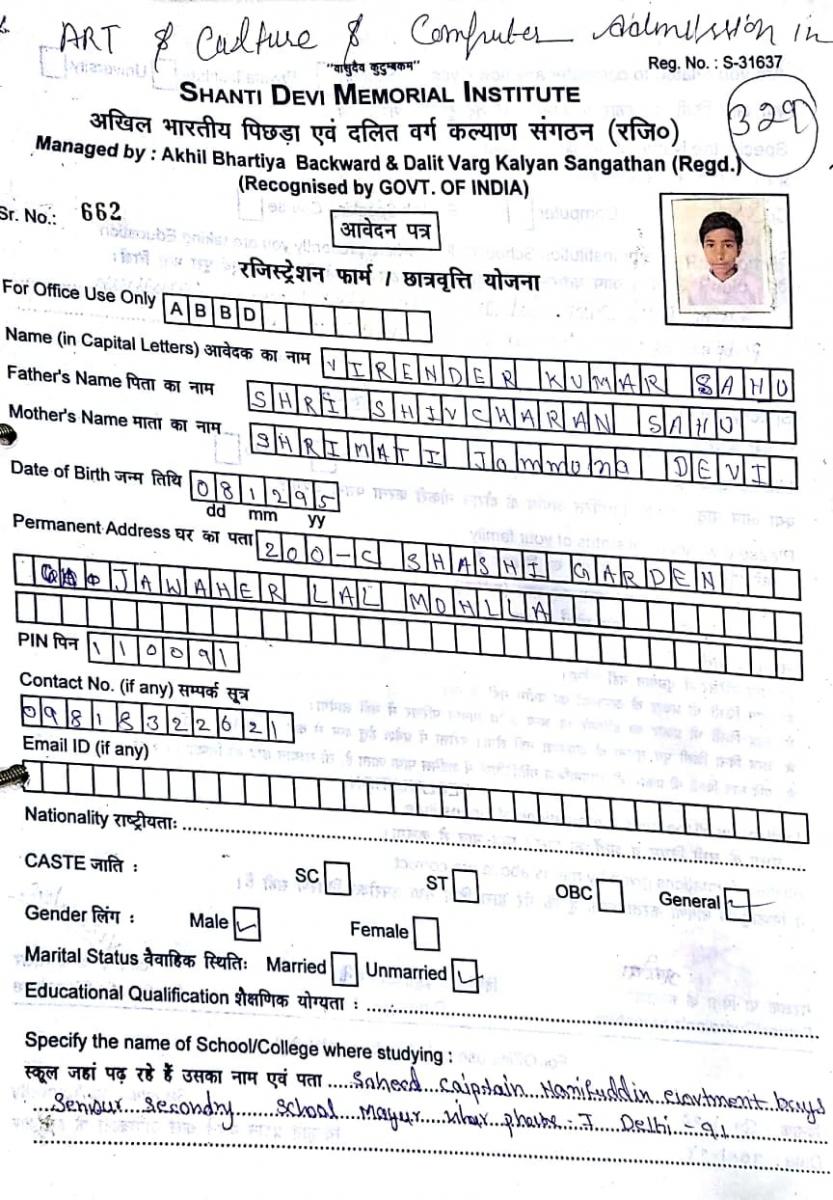 ART & Culture & Computer Admission in
"वासुदेव कुटुम्बकम्"
Reg. No. : S-31637
SHANTI DEVI MEMORIAL INSTITUTE
329
अखिल भारतीय पिछड़ा एवं दलित वर्ग कल्याण संगठन (रजि०)
Managed by : Akhil Bhartiya Backward & Dalit Varg Kalyan Sangathan (Regd.)
(Recognised by GOVT. OF INDIA)
Sr. No.: 662
आवेदन पत्र
रजिस्ट्रेशन फार्म / छात्रवृत्ति योजना
For Office Use Only ABBD
Name (in Capital Letters) आवेदक का नाम VIRENDER KUMAR SAHU
Father's Name पिता का नाम SHRI SHIVCHARAN SAHU
Mother's Name माता का नाम SHRIMATI Jammuna DEVI
Date of Birth जन्म तिथि 081295
dd mm yy
Permanent Address घर का पता 200-C SHASHI GARDEN
JAWAHER LAL MOHLLA
PIN पिन 110091
Contact No. (if any) सम्पर्क सूत्र
09818322621
Email ID (if any)
Nationality राष्ट्रीयताः
CASTE जाति : SC ST OBC General
Gender लिंग : Male Female
Marital Status वैवाहिक स्थितिः Married Unmarried
Educational Qualification शैक्षणिक योग्यता :
Specify the name of School/College where studying :
स्कूल जहां पढ़ रहे हैं उसका नाम एवं पता Saheed Caipstain Hanifuddin boys
Seniour Secondry School Mayur vihar phase - I Delhi - 91